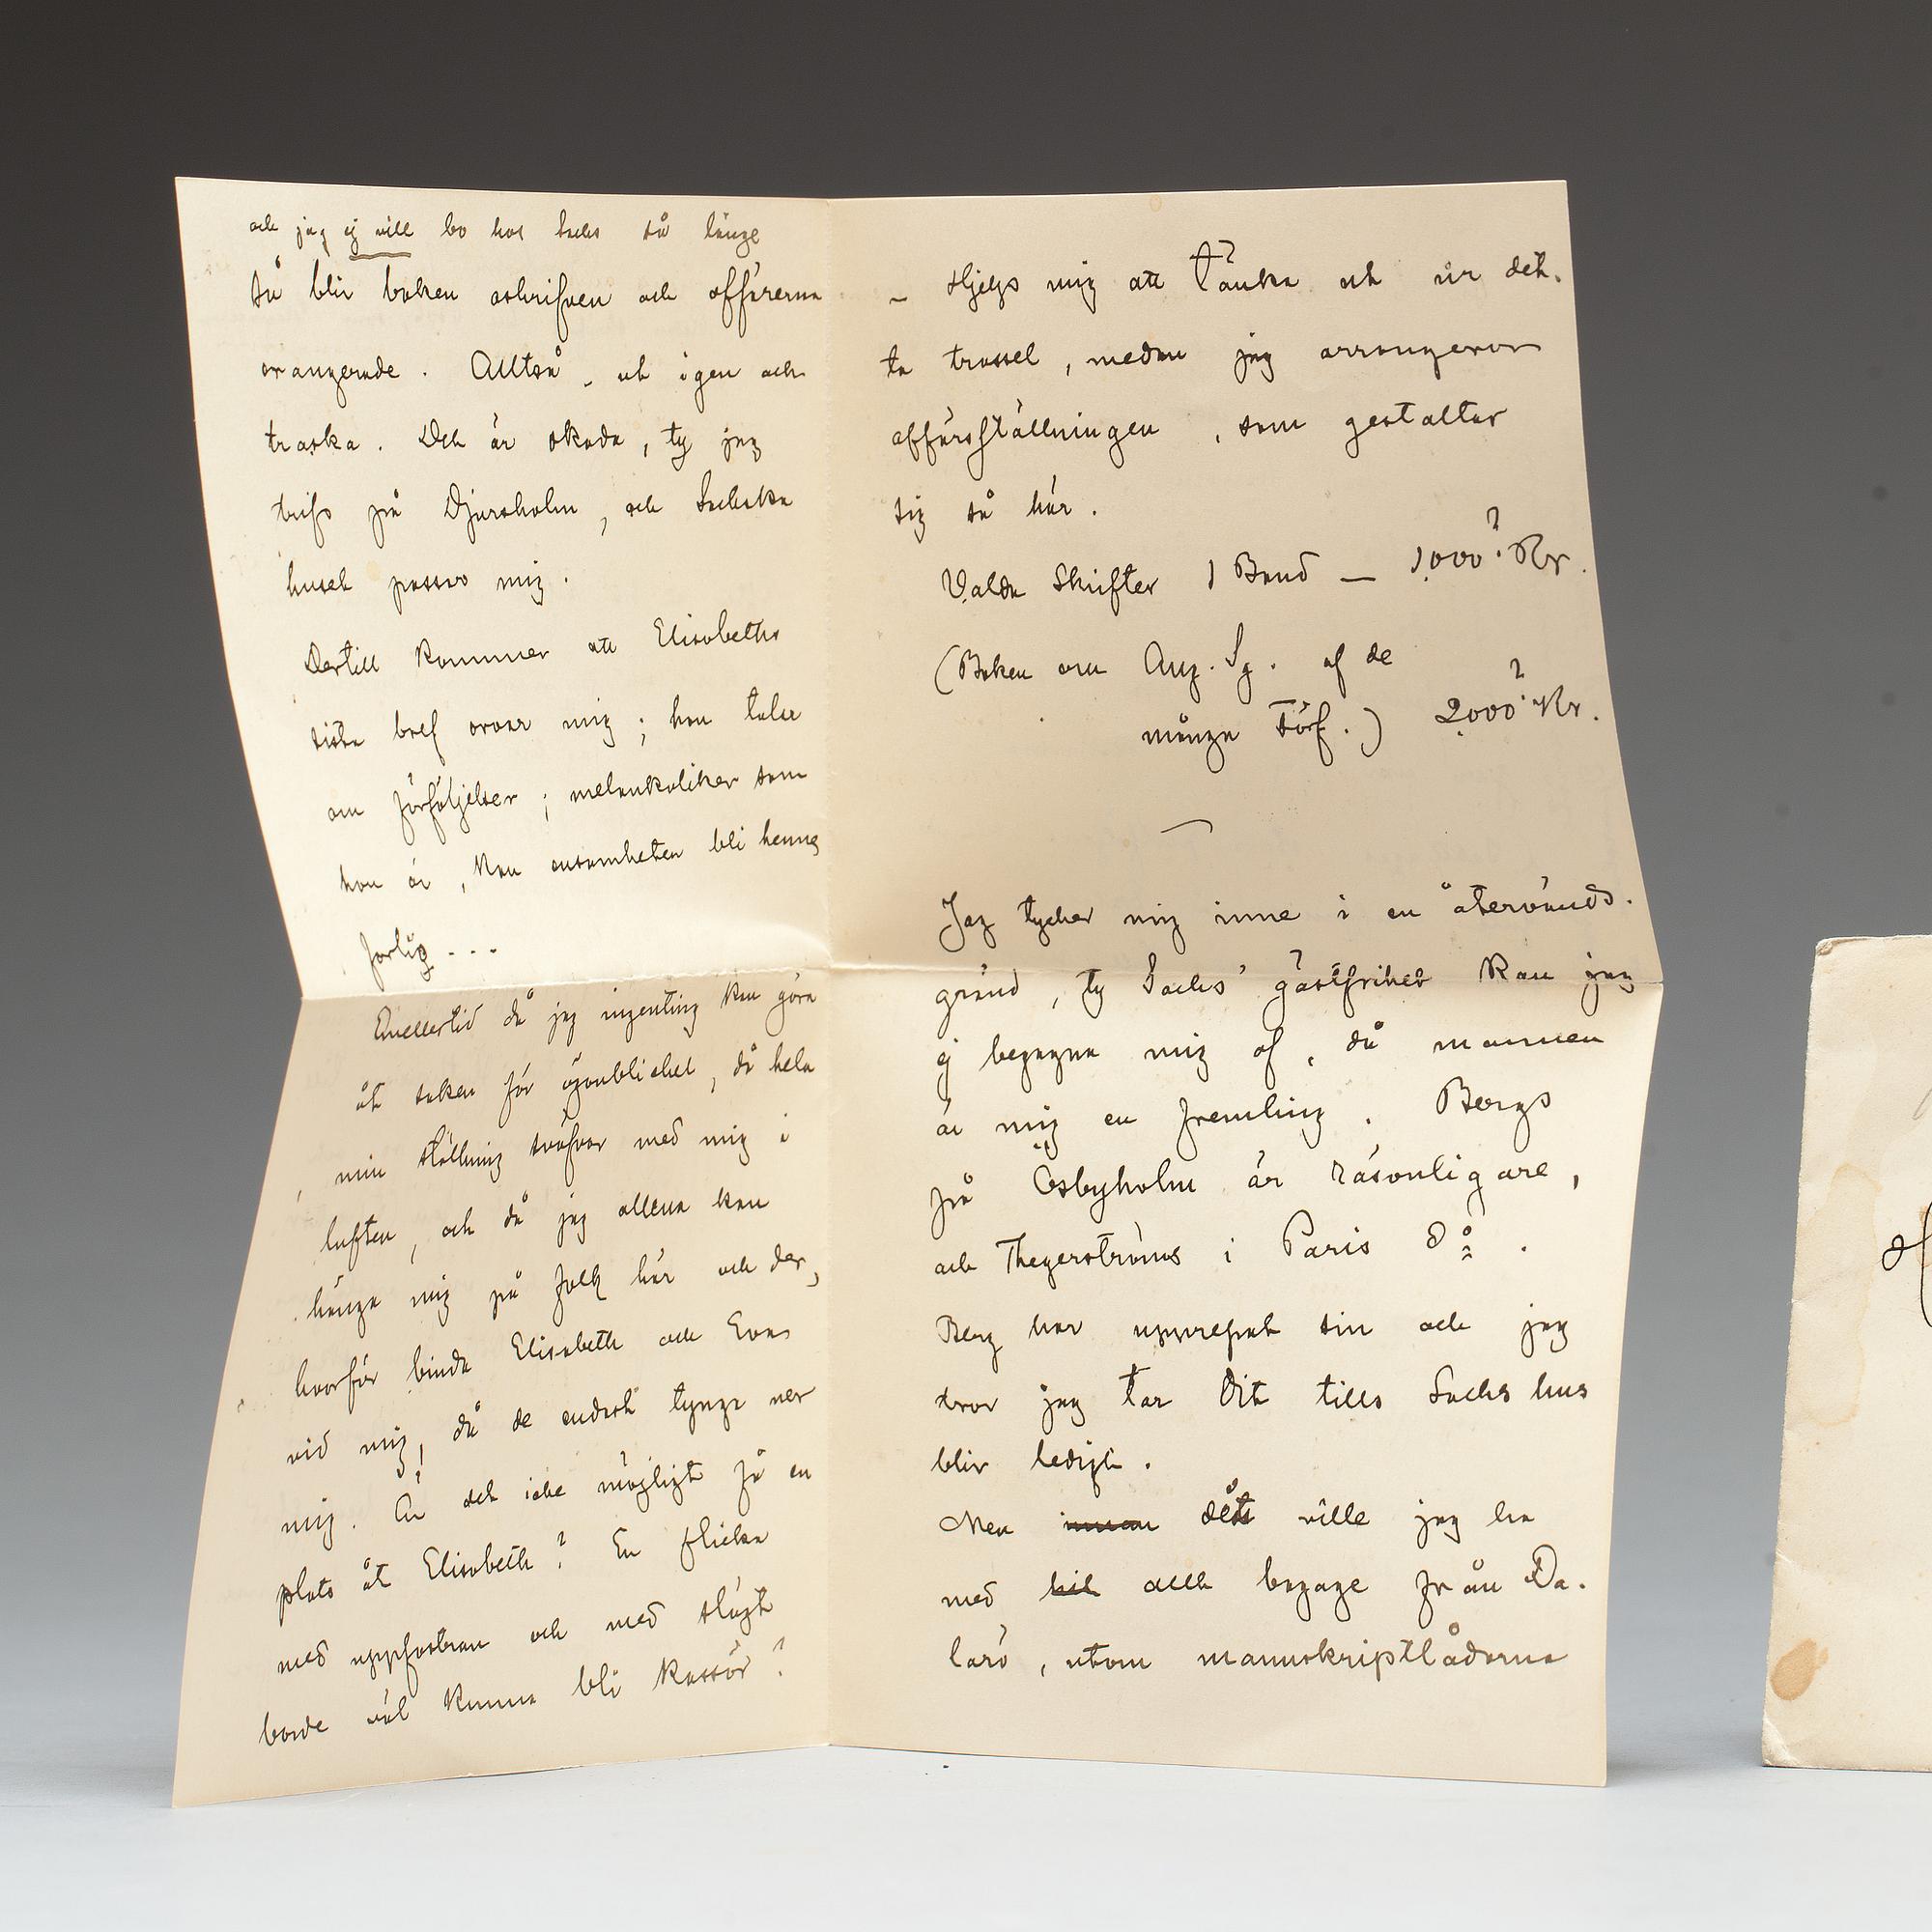 och jag ej vill bo hos Sachs så länge
så blir boken oskrifven och affärerna
orangerade. Alltså, ut igen och
traska. Det är skada, ty jag
trifs på Djursholm, och Sachska
huset passar mig.
Dertill kommer att Elisabeths
sista bref oroar mig; hon talar
om förföljelser; melankoliker som
hon är, kan ensamheten bli henne
farlig...
Emellertid då jag ingenting kan göra
åt saken för ögonblicket, då hela
min ställning sväfvar med mig i
luften, och då jag allena kan
hänga mig på folk här och der,
hvarför binda Elisabeth och Evas
vid mig, då de endast tynga ner
mig. Är det icke möjligt få en
plats åt Elisabeth? En flicka
med uppfostran och med slägt
borde väl kunna bli kassör?
– Hjelp mig att tänka ut ur det-
ta trassel, medan jag arrangerar
affärsställningen, som gestaltar
sig så här.
Valda Skrifter 1 Band — 1,000? Kr.
(Boken om Aug. Sg. af de
många Förf.) 2,000? Kr.
Jag tycker mig inne i en återvänds-
gränd, ty Sachs' gästfrihet kan jag
ej begagna mig af, då mannen
är mig en fremling. Bergs
på Ösbyholm är räsonligare,
och Thegerströms i Paris do.
Berg har upprepat sin och jag
tror jag tar dit tills Sachs hus
blir ledigt.
Men innan dess ville jag ha
med hit allt bagage från Da-
larö, utom manuskriptlådorna